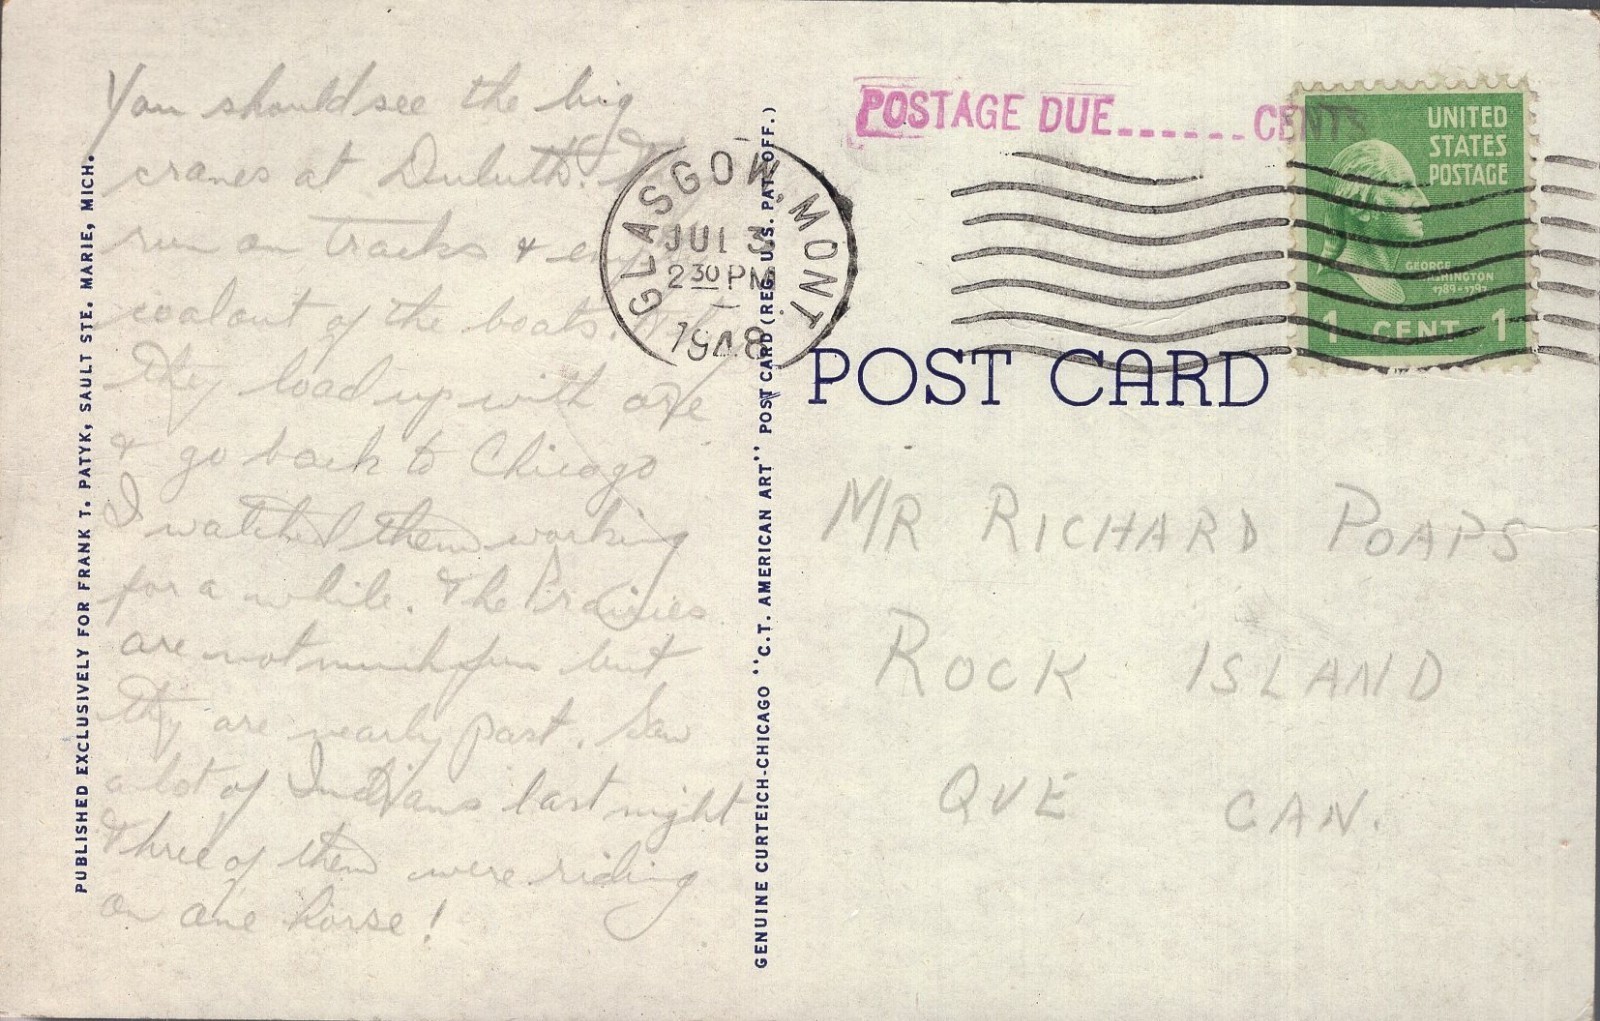 You should see the big
cranes at Duluth. They
run on tracks & empty
coal out of the boats. Next
They load up with ore
& go back to Chicago
I watched them working
for a while. The Prairies
are not much fun but
they are nearly past. Saw
a lot of Indians last night
& three of them were riding
on one horse!
PUBLISHED EXCLUSIVELY FOR FRANK T. PATYK, SAULT STE. MARIE, MICH.
GENUINE CURTEICH-CHICAGO "C.T. AMERICAN ART" POST CARD (REG. U.S. PAT. OFF.)
GLASGOW, MONT.
JUL 3
2 30 PM
1948
POSTAGE DUE______CENTS
UNITED
STATES
POSTAGE
GEORGE
WASHINGTON
1789-1797
1 CENT 1
POST CARD
MR RICHARD POAPS
ROCK ISLAND
QUE CAN.